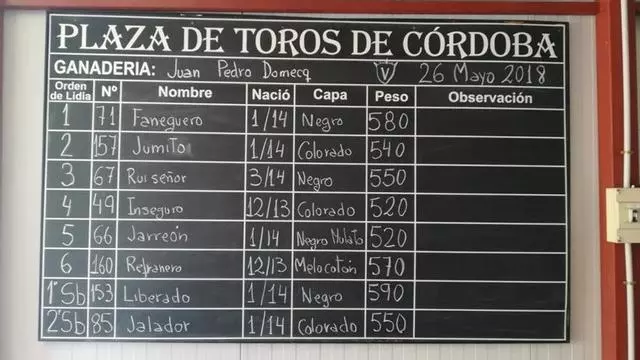 PLAZA DE TOROS DE CÓRDOBA
GANADERIA: Juan Pedro Domecq V 26 Mayo 2018
Orden de Lidia Nº Nombre Nació Capa Peso Observación
1 71 Faneguero 1/14 Negro 580
2 157 Jumito 1/14 Colorado 540
3 67 Ruiseñor 3/14 Negro 550
4 49 Inseguro 12/13 Colorado 520
5 66 Jarreón 1/14 Negro Mulato 520
6 160 Refranero 12/13 Melocotón 570
1ºSb 153 Liberado 1/14 Negro 590
2ºSb 85 Jalador 1/14 Colorado 550